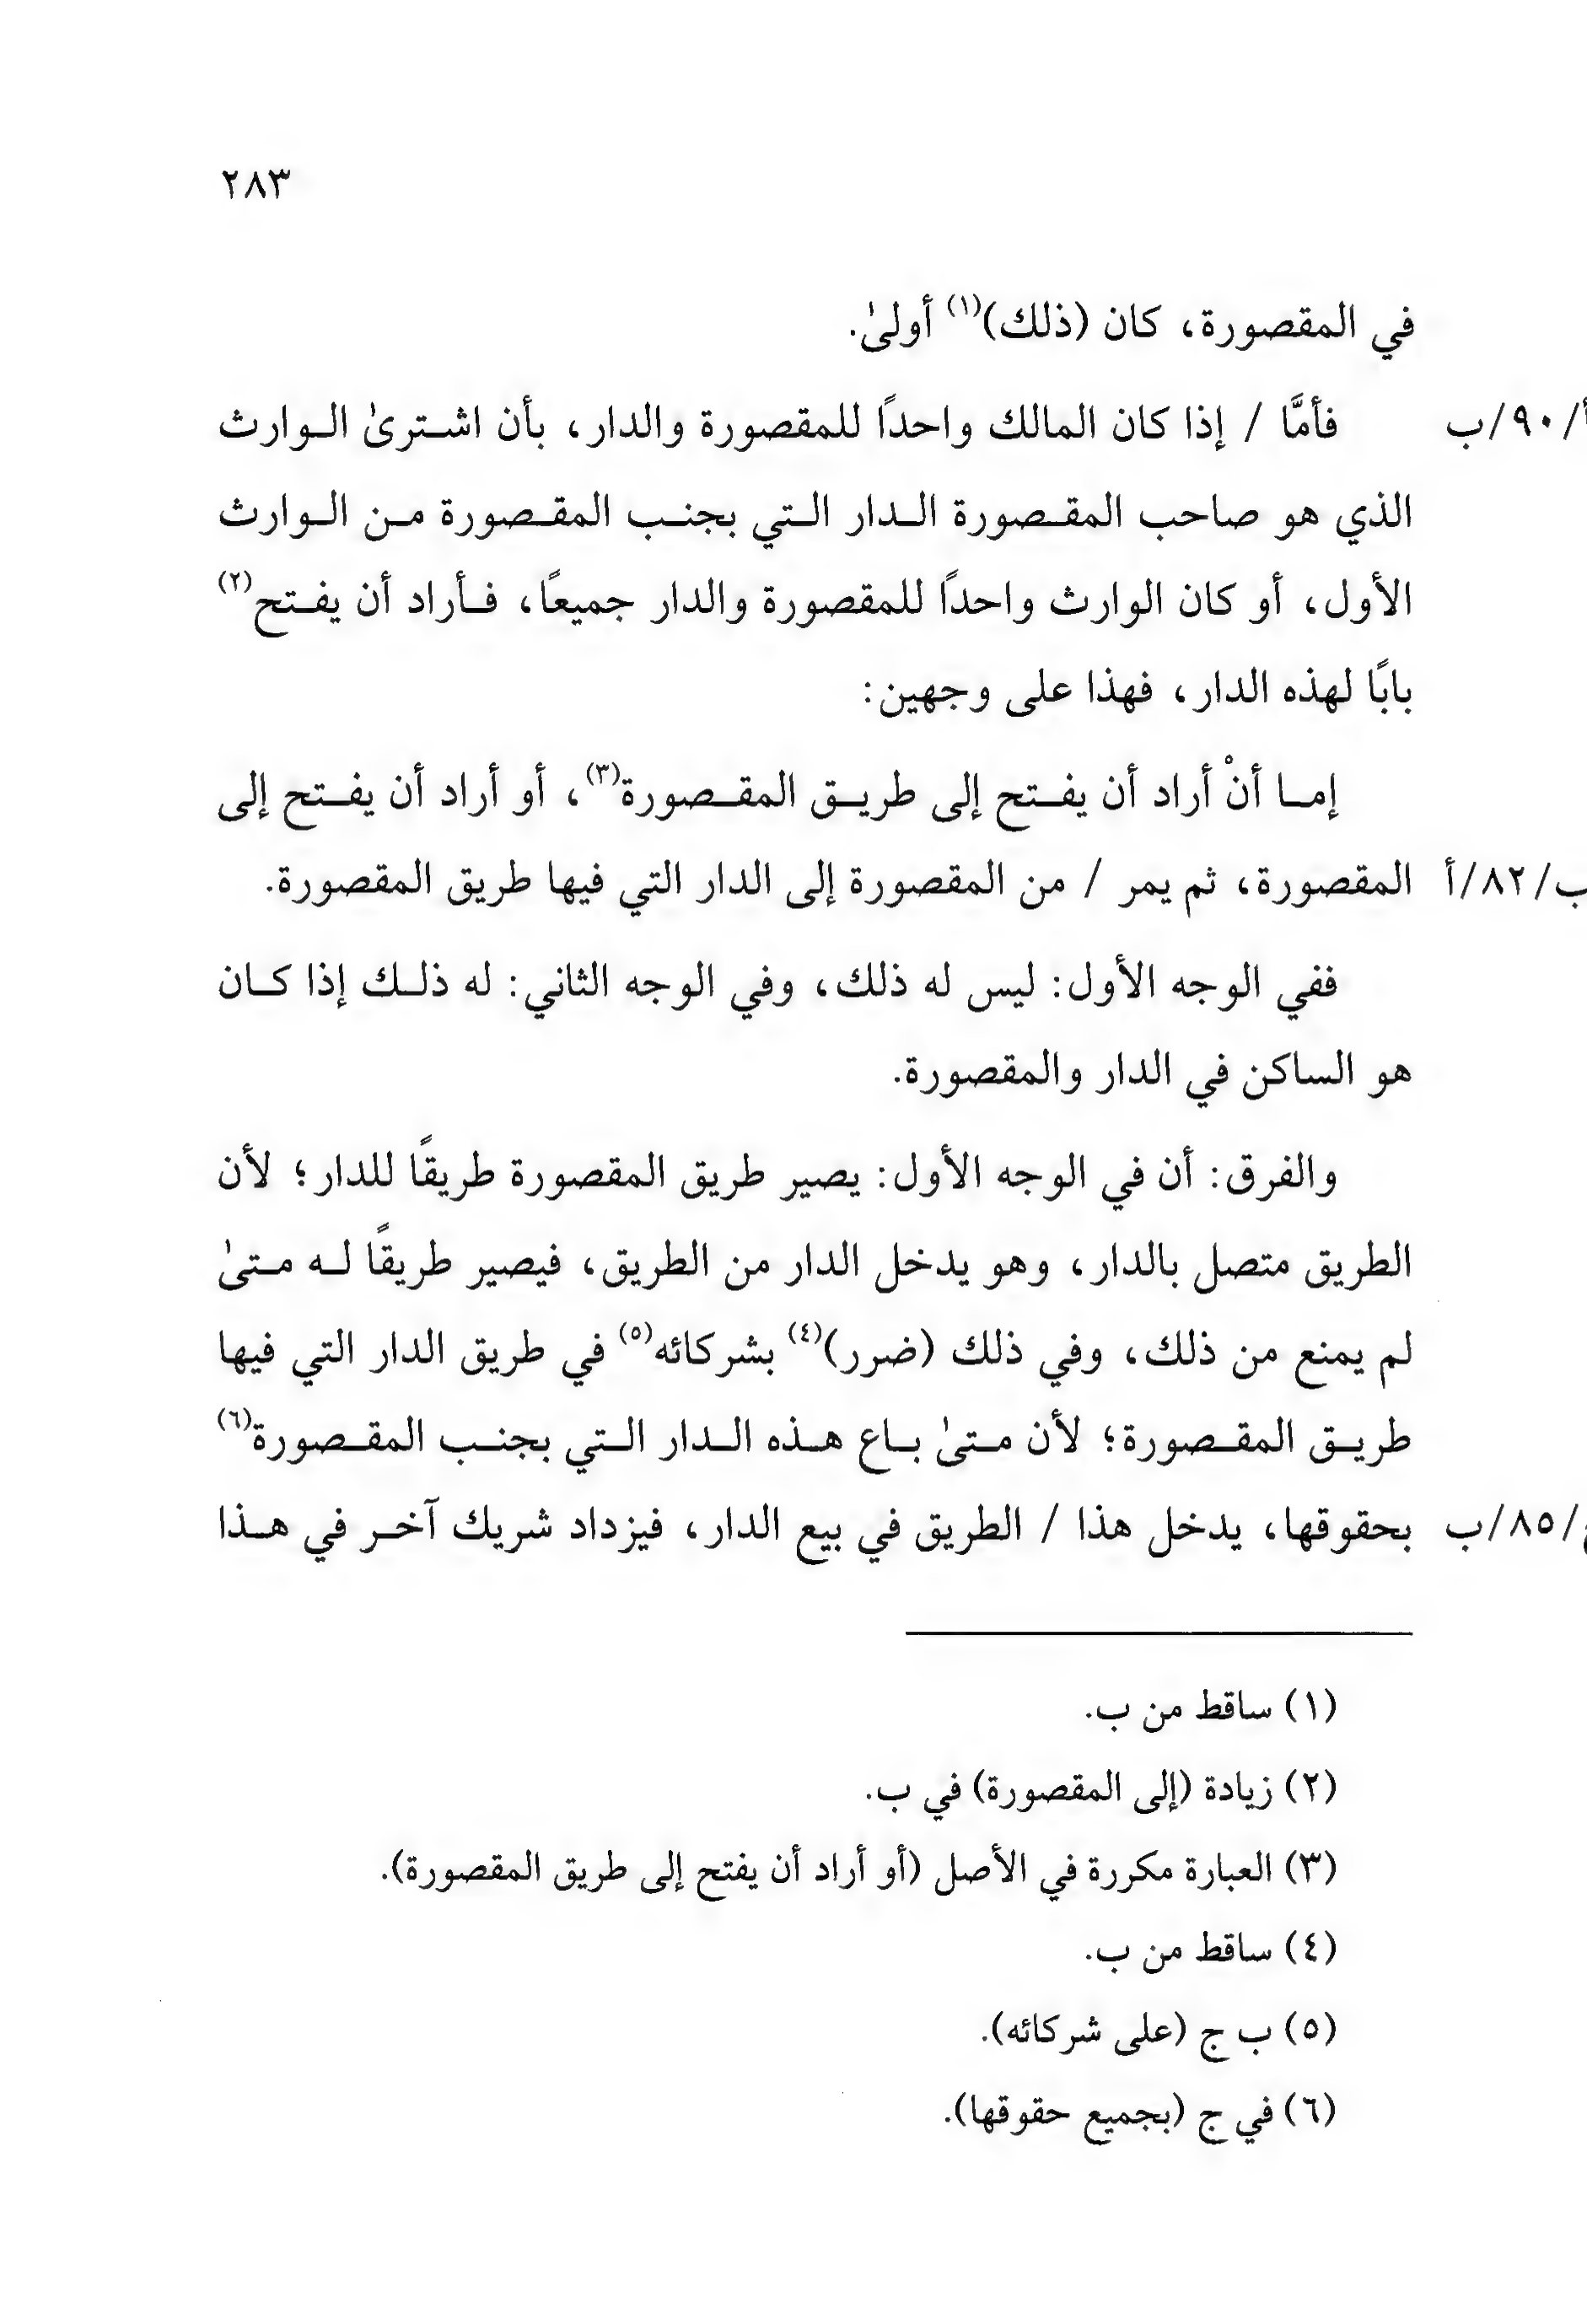 ٢٨٣
في المقصورة، كان (ذلك)(١) أولىٰ.
فأمَّا / إذا كان المالك واحدًا للمقصورة والدار، بأن اشترىٰ الوارث أ/٩٠/ب
الذي هو صاحب المقصورة الدار التي بجنب المقصورة من الوارث
الأول، أو كان الوارث واحدًا للمقصورة والدار جميعًا، فأراد أن يفتح(٢)
بابًا لهذه الدار، فهذا على وجهين:
إما أنْ أراد أن يفتح إلى طريق المقصورة(٣)، أو أراد أن يفتح إلى
المقصورة، ثم يمر / من المقصورة إلى الدار التي فيها طريق المقصورة. ب/٨٢/أ
ففي الوجه الأول: ليس له ذلك، وفي الوجه الثاني: له ذلك إذا كان
هو الساكن في الدار والمقصورة.
والفرق: أن في الوجه الأول: يصير طريق المقصورة طريقًا للدار؛ لأن
الطريق متصل بالدار، وهو يدخل الدار من الطريق، فيصير طريقًا له متىٰ
لم يمنع من ذلك، وفي ذلك (ضرر)(٤) بشركائه(٥) في طريق الدار التي فيها
طريق المقصورة؛ لأن متىٰ باع هذه الدار التي بجنب المقصورة(٦)
بحقوقها، يدخل هذا / الطريق في بيع الدار، فيزداد شريك آخر في هذا ج/٨٥/ب
(١) ساقط من ب.
(٢) زيادة (إلى المقصورة) في ب.
(٣) العبارة مكررة في الأصل (أو أراد أن يفتح إلى طريق المقصورة).
(٤) ساقط من ب.
(٥) ب ج (على شركائه).
(٦) في ج (بجميع حقوقها).